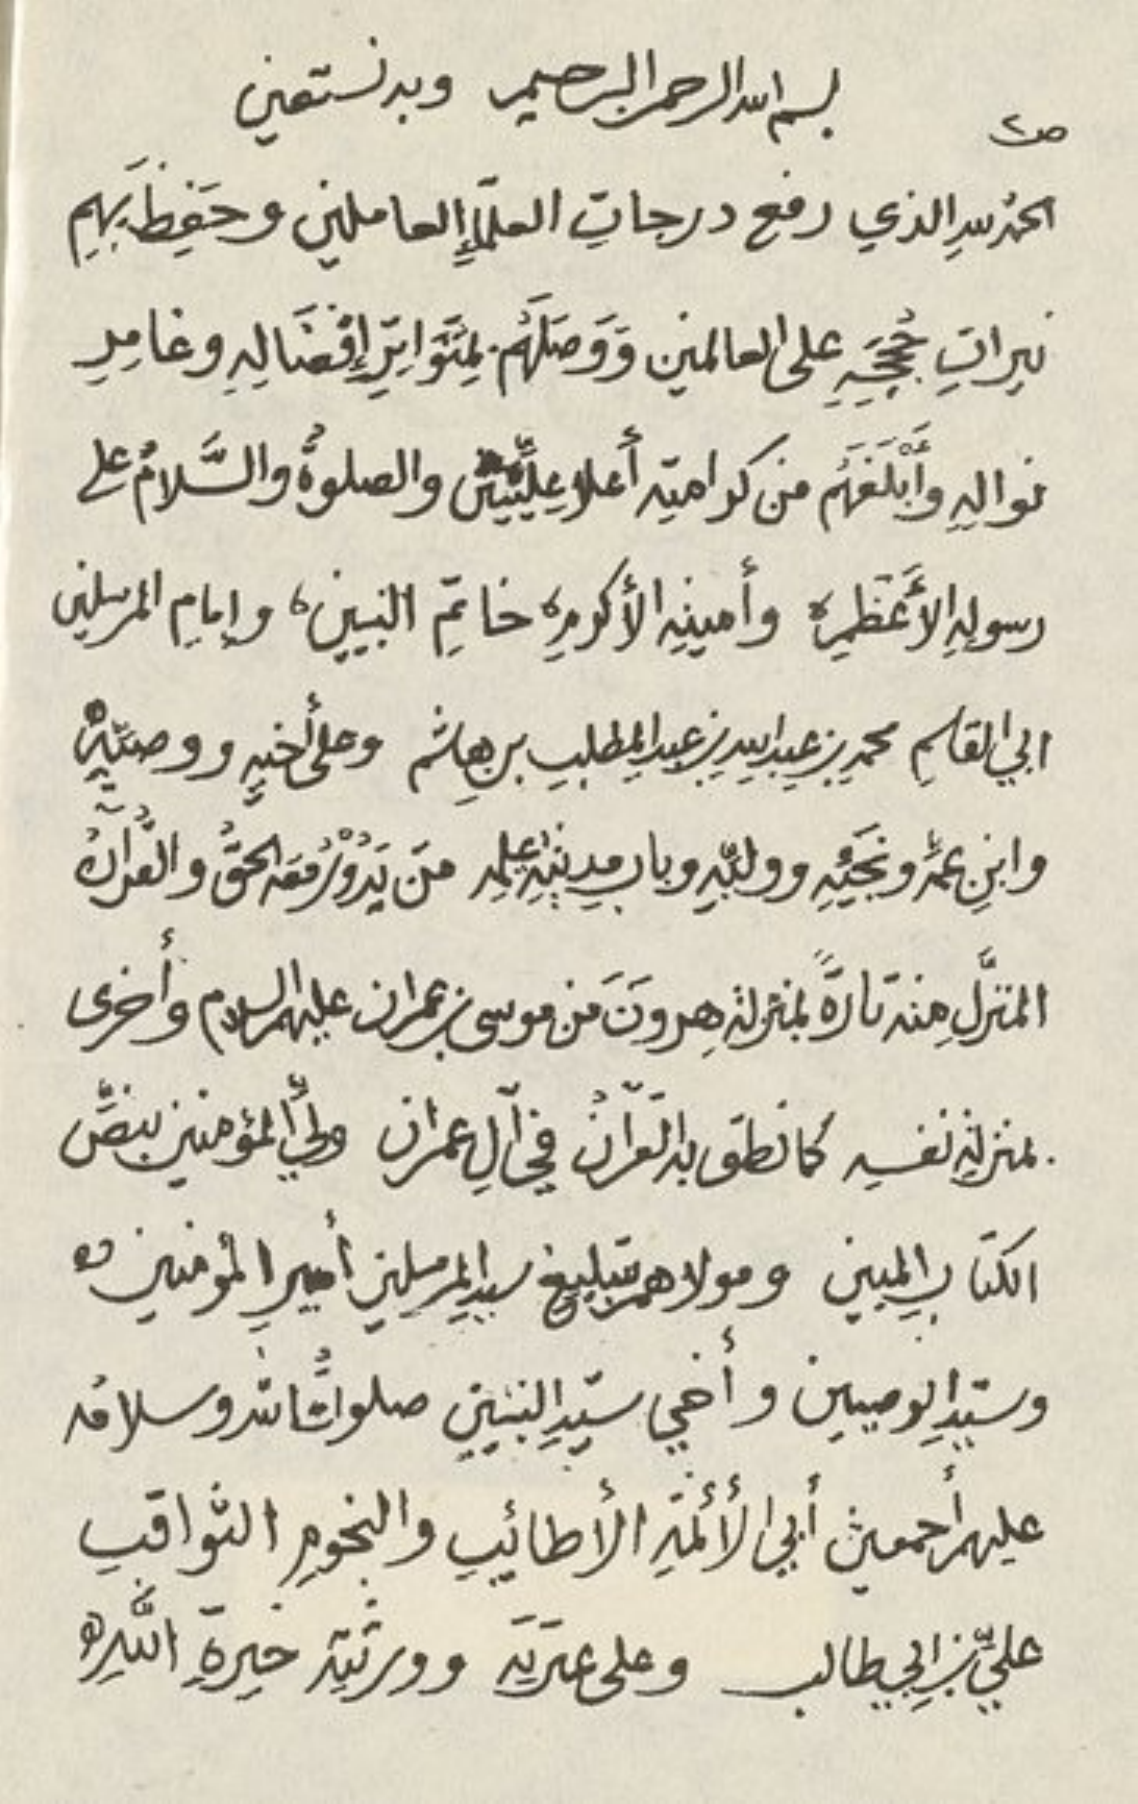 بسم الله الرحمن الرحيم وبه نستعين
ص٢
الحمدُ للهِ الذي رفع درجاتِ العلمآءِ العاملين وحَفِظَ بَهِم
نيراتِ حُجَجِهِ على العالمين وَوَصَلَهُم بمِتَوَاتِرِ إفْضَالِهِ وغامِدِ
نوالِهِ وأَبْلَغَهُم من كرامته أعلا عِلِّيِّينَ والصلوةُ والسَّلامُ على
رسولِهِ الأَعْظمِ، وأمينِهِ الأكرمِ، خاتمِ النبيين، وإمامِ المرسلين
ابي القاسمِ محمدِ بنِ عبداللهِ بنِ عبدالمطلبِ بن هاشم وعلى أخيهِ ووصيِّهِ
وابنِ عمِّهِ ونَجَيِّهِ ووليِّهِ وبابِ مدينةِ علمِهِ مَن يَدُوْرُ مَعَه الحقُّ والقُرآنُ
المنزَّلِ منه تارةً بمنزلةِ هرونَ من موسى بن عمران عليهم السلام وأُخرى
بمنزلةِ نفسه كما نطق به القرآنُ في آلِ عمران وليِّ المؤمنين بنصِّ
الكتابِ المبين ومولاهم بتبليغِ سيدِ المرسلين أميرِ المؤمنين
وسيّدِ الوصيين وأخي سيّدِ النبيين صلواتُ الله وسلامُه
عليهم أجمعين أبي الأئمّةِ الأطائبِ والنجومِ الثواقبِ
عليِّ بنِ ابي طالب وعلى عترته وورثتِه خيرةِ اللّهِ